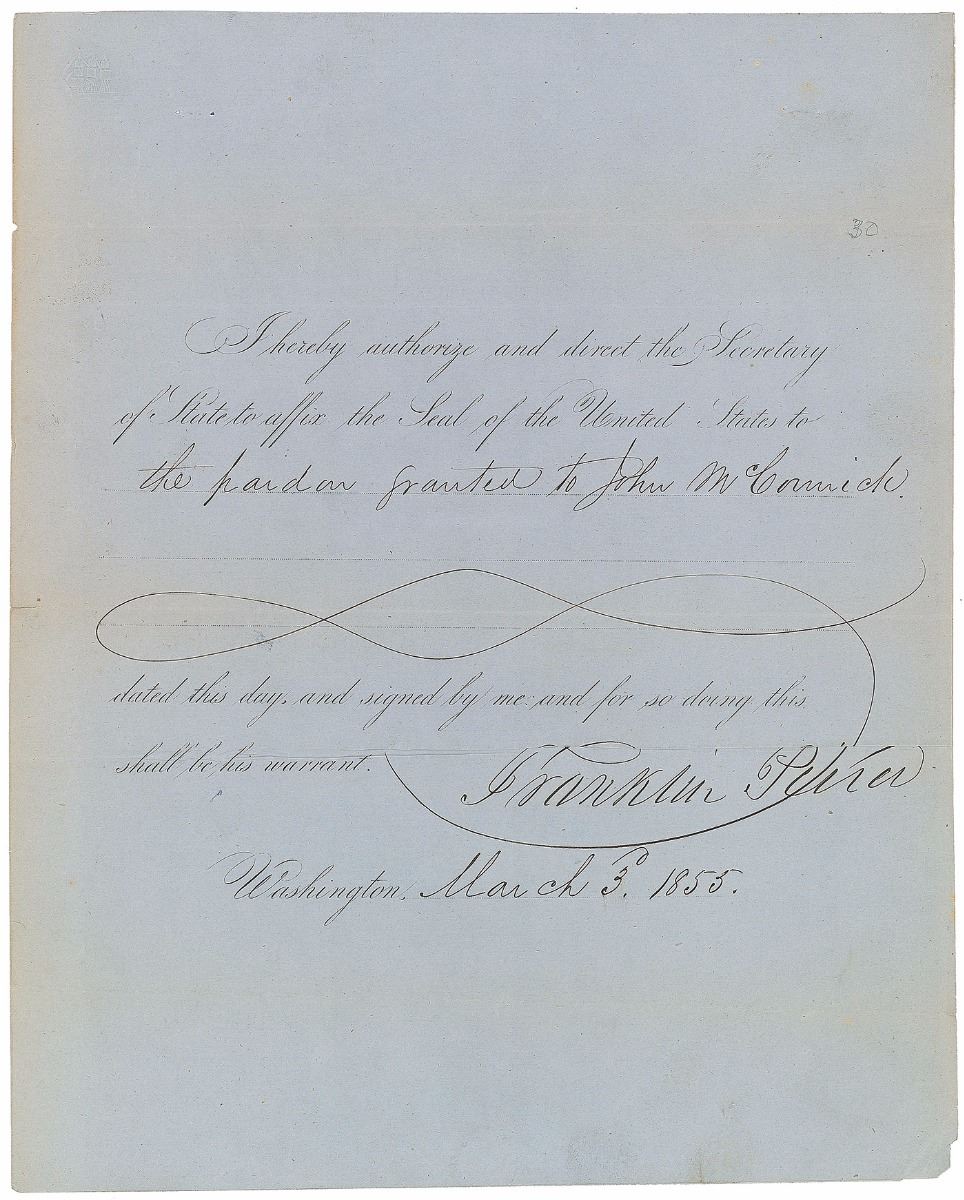 30
I hereby authorize and direct the Secretary
of State to affix the Seal of the United States to
the pardon granted to John McCormick.
dated this day, and signed by me: and for so doing this
shall be his warrant.
Franklin Pierce
Washington, March 3d. 1855.